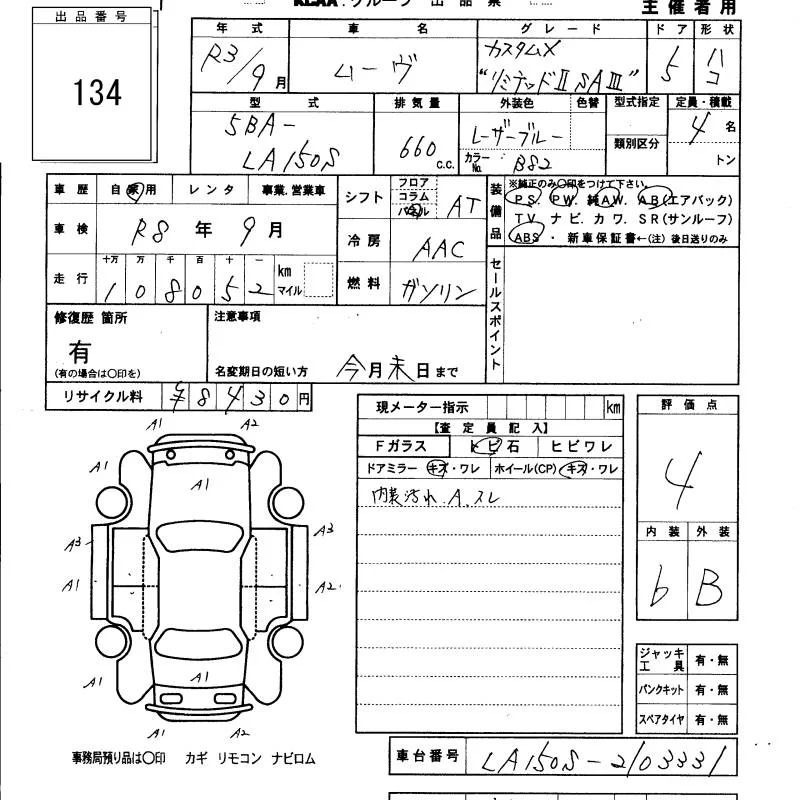 KCAA・グループ 出品票
主催者用
出品番号
134
年式 車名 グレード ドア 形状
R3/9月 ムーヴ カスタムX "リミテッドⅡSAⅢ" 5 ハコ
型式 排気量 外装色 色替 型式指定 定員・積載
5BA-
LA150S 660 c.c. レーザーブルー 類別区分 4名
カラーNo. B82 トン
車歴 自家用 レンタ 事業.営業車
シフト フロア コラム パネル AT
車検 R8年9月
冷房 AAC
走行 十万 万 千 百 十 一
108052 km マイル
燃料 ガソリン
装備品
※純正のみ〇印をつけて下さい。
PS. PW. 純AW. AB(エアバック)
TV. ナビ. カワ. SR(サンルーフ)
ABS ・ 新車保証書←(注) 後日送りのみ
セールスポイント
修復歴 箇所
有
(有の場合は〇印を)
注意事項
名変期日の短い方 今月末日まで
リサイクル料 ¥8430円
A1 A2
A1
A1
A3 A3
A1 A2
A1 A1
A1 A2
事務局預り品は〇印 カギ リモコン ナビロム
現メーター指示 km
【査定員記入】
Fガラス トビ石 ヒビワレ
ドアミラー キズ・ワレ ホイール(CP) キズ・ワレ
内装汚れ.A.スレ
評価点
4
内装 外装
b B
ジャッキ工具 有・無
パンクキット 有・無
スペアタイヤ 有・無
車台番号 LA150S-2103331